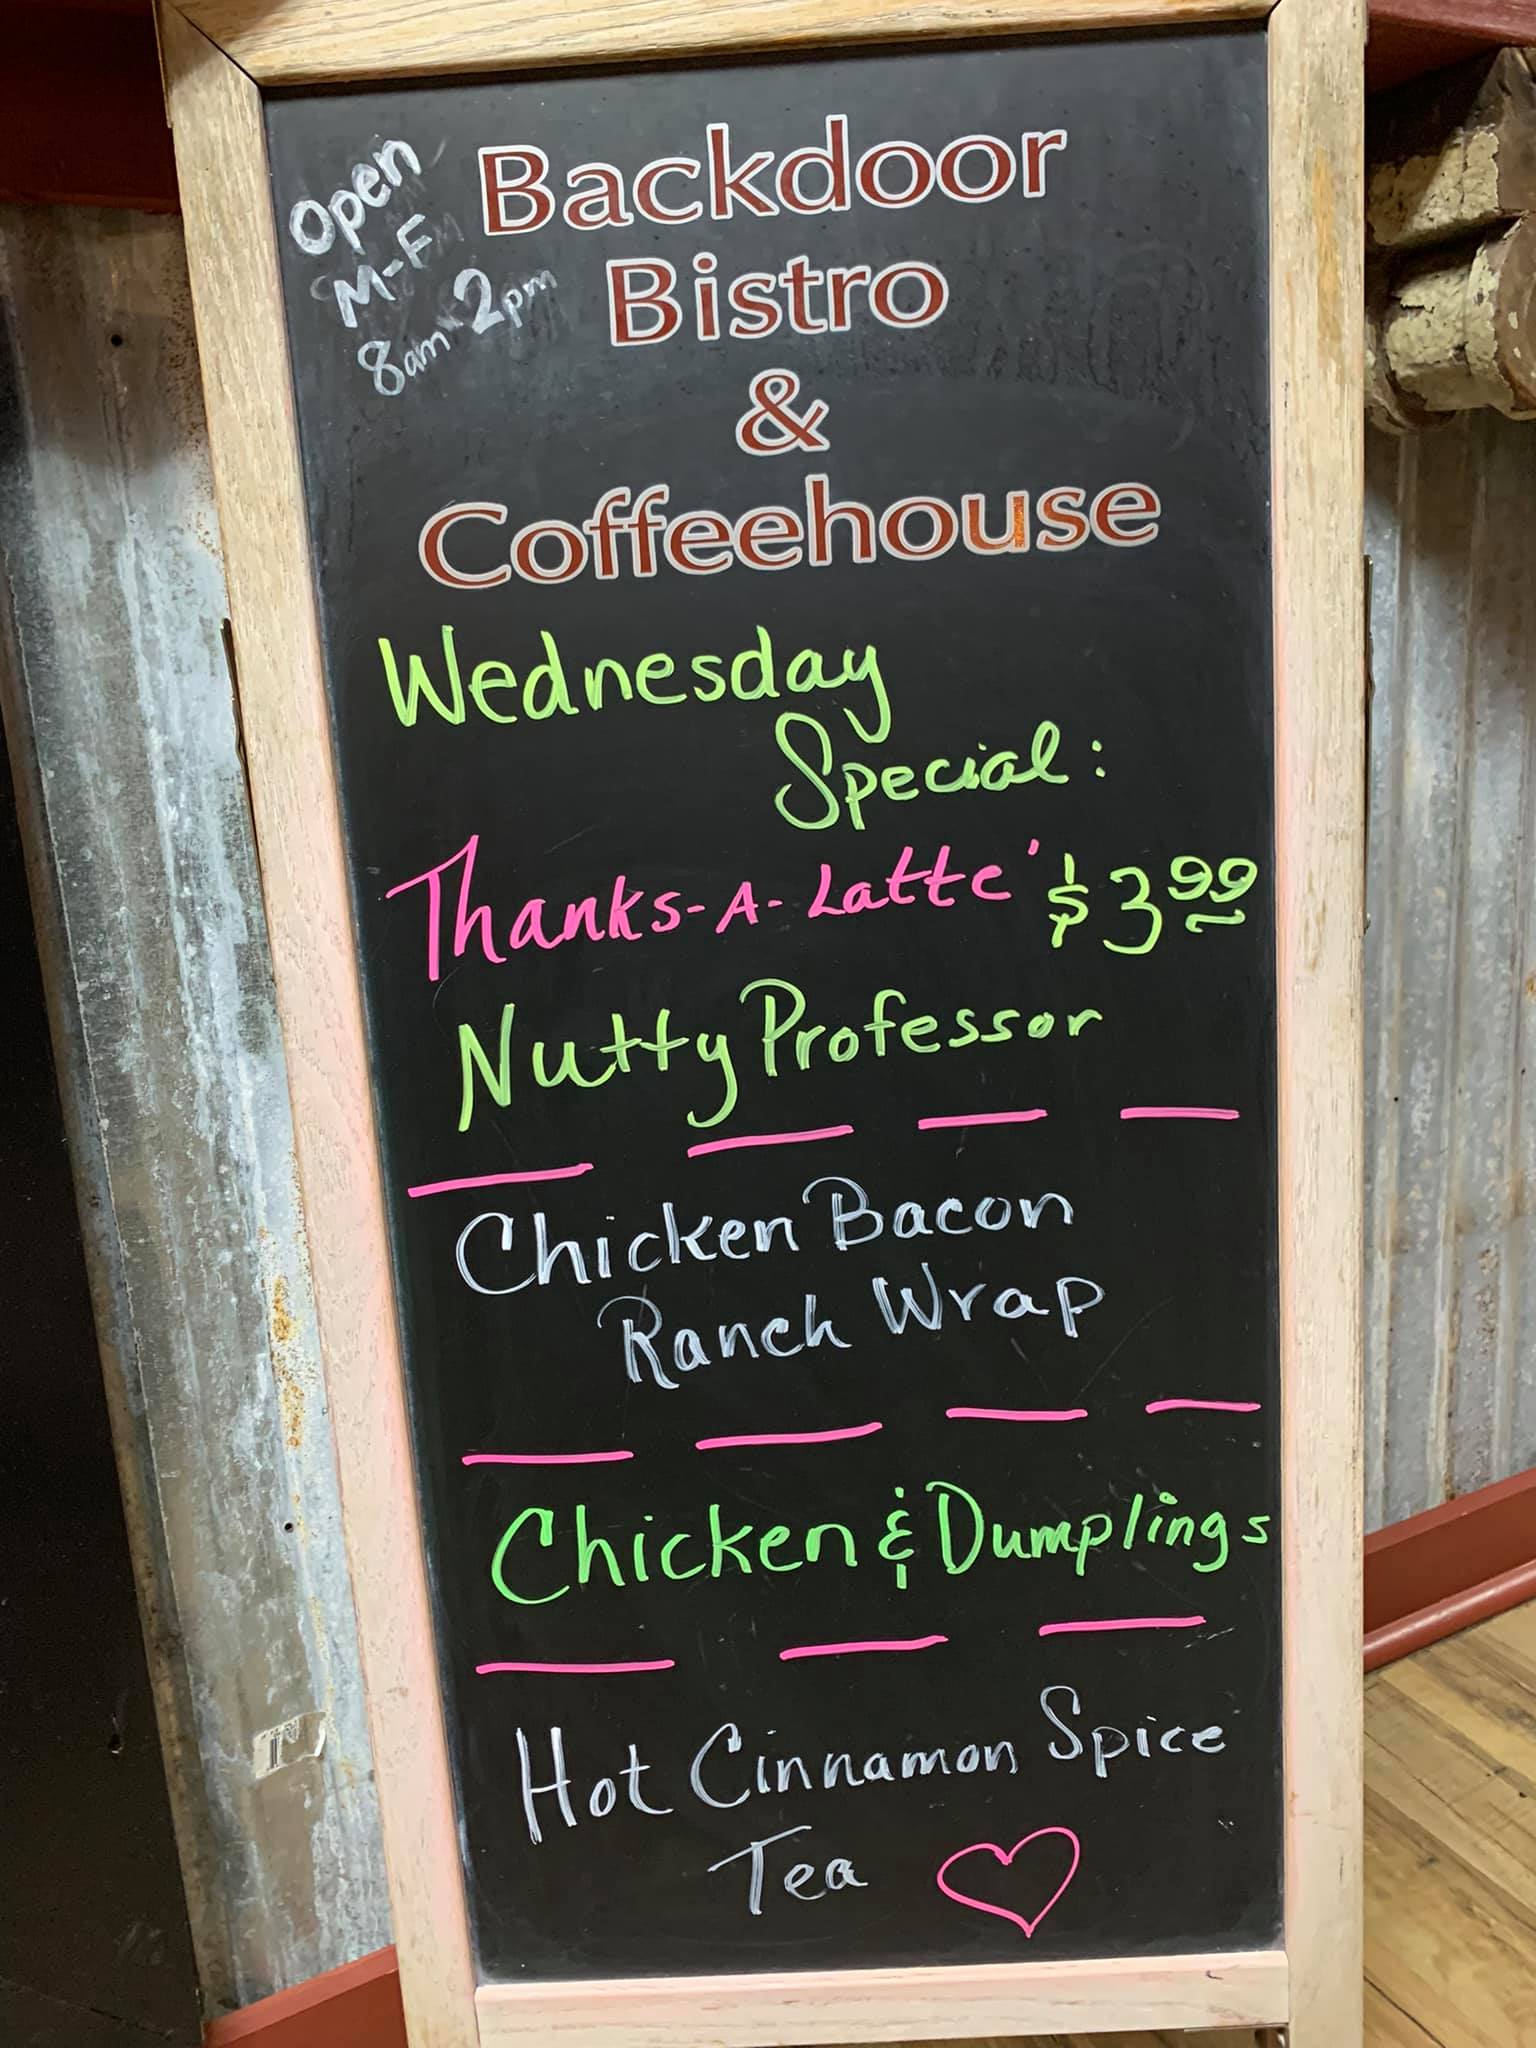 Open
M-F
8am-2pm
Backdoor
Bistro
&
Coffeehouse
Wednesday
Special:
Thanks-A-Latte' $3.99
Nutty Professor
Chicken Bacon
Ranch Wrap
Chicken & Dumplings
Hot Cinnamon Spice
Tea